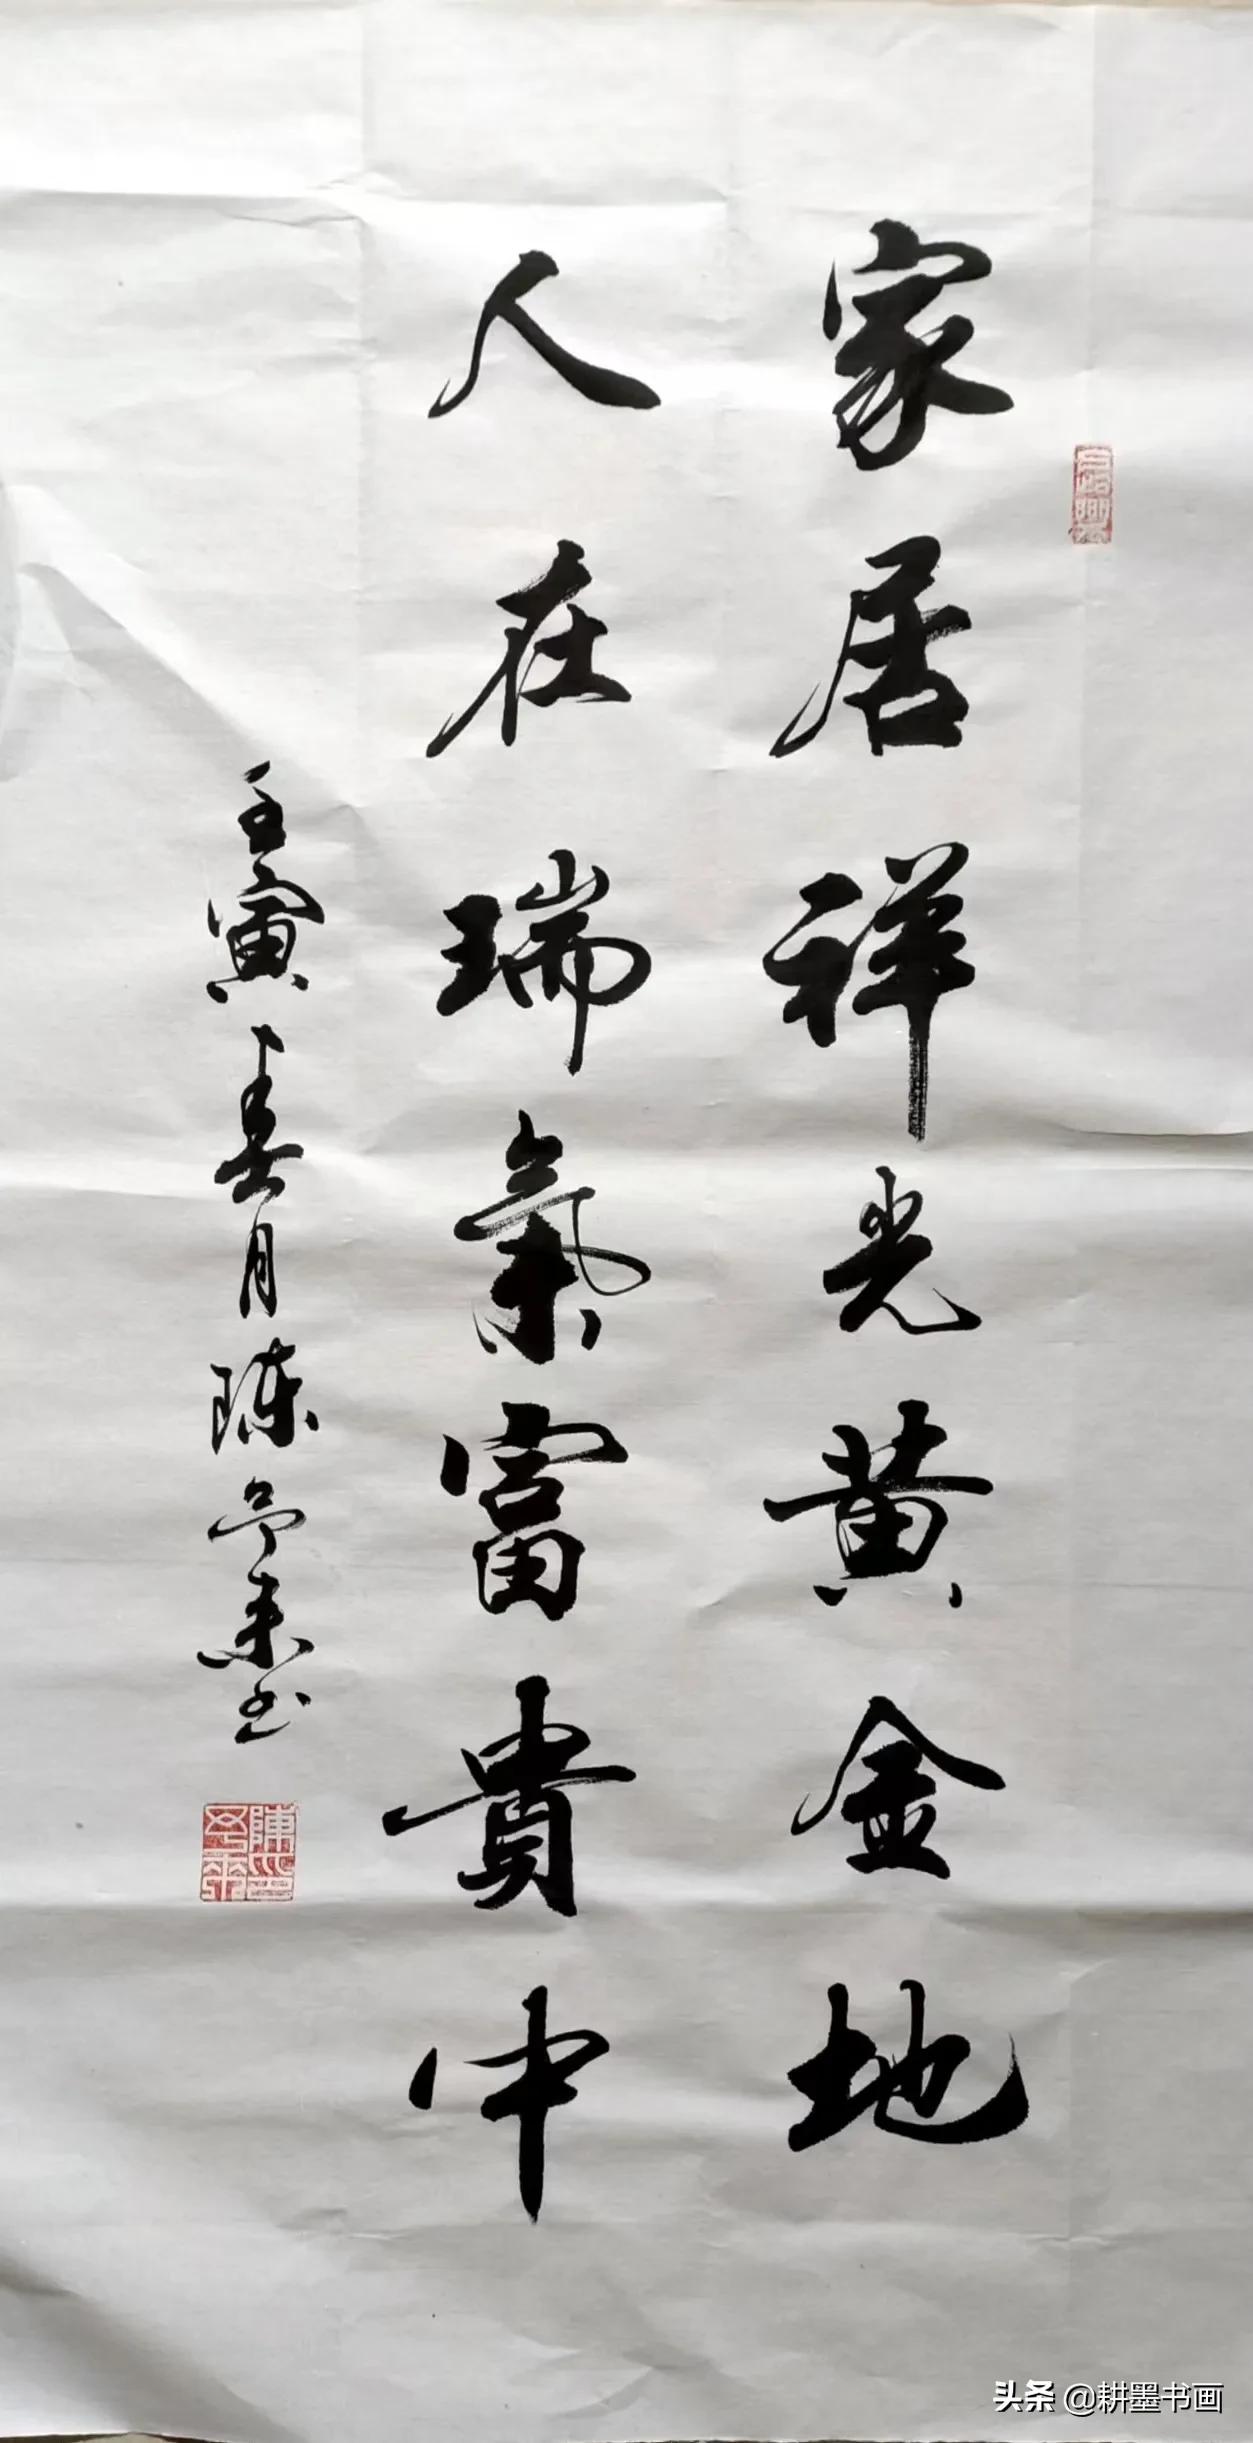 家居祥光黄金地
人在瑞氣富貴中
壬寅春月陈予来书
头条 @耕墨书画